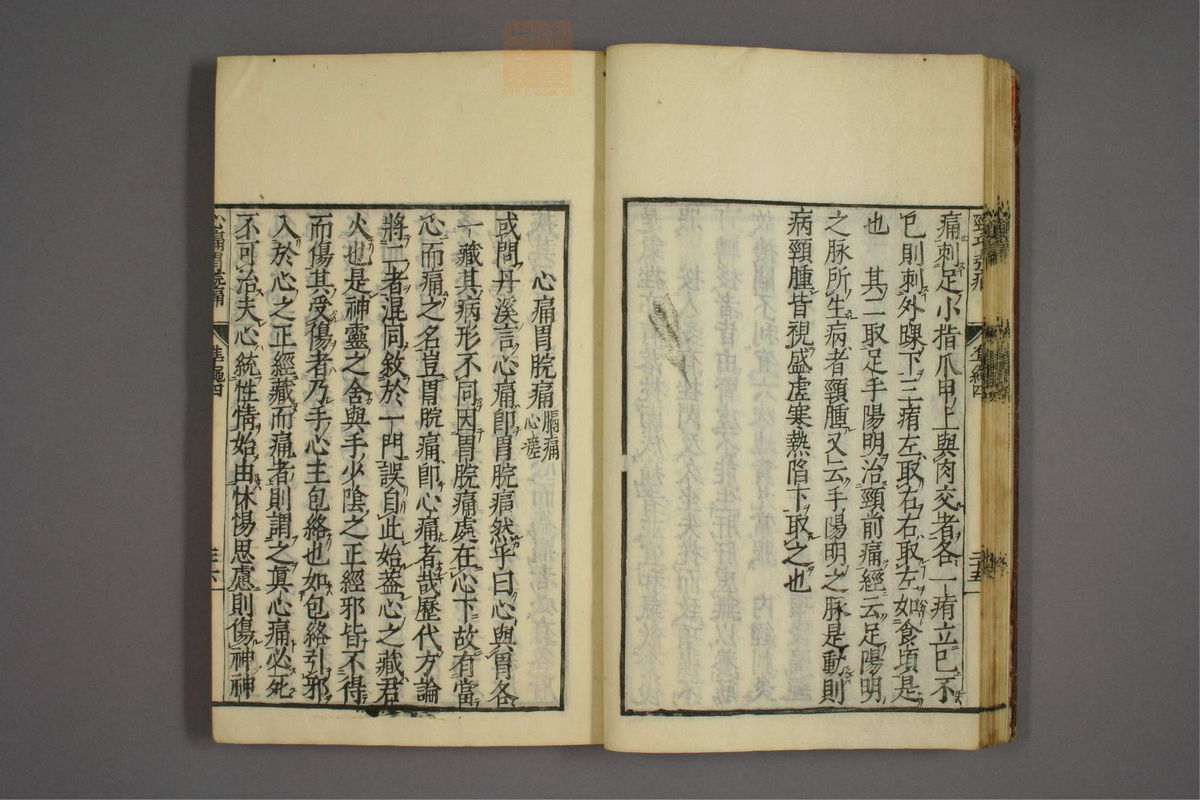 痛刺足小指爪甲上與肉交者各一痏立已不
已則刺外踝下三痏左取右右取左如食頃是
也　其二取足手陽明治頸前痛經云足陽明
之脉所生病者頸腫又云手陽明之脉是動則
病頸腫皆視盛虛寒熱陷下取之也
心痛胃脘痛 膈痛 心瘥
或問丹溪言心痛卽胃脘痛然乎曰心與胃各
一藏其病形不同因胃脘痛處在心下故有當
心而痛之名豈胃脘痛卽心痛者哉歷代方論
將二者混同敘於一門誤自此始蓋心之藏君
火也是神靈之舍與手少陰之正經邪皆不得
而傷其受傷者乃手心主包絡也如包絡引邪
入於心之正經藏而痛者則謂之眞心痛必死
不可治夫心統性情始由怵惕思慮則傷神神
心痛胃脘痛 準繩四 三六